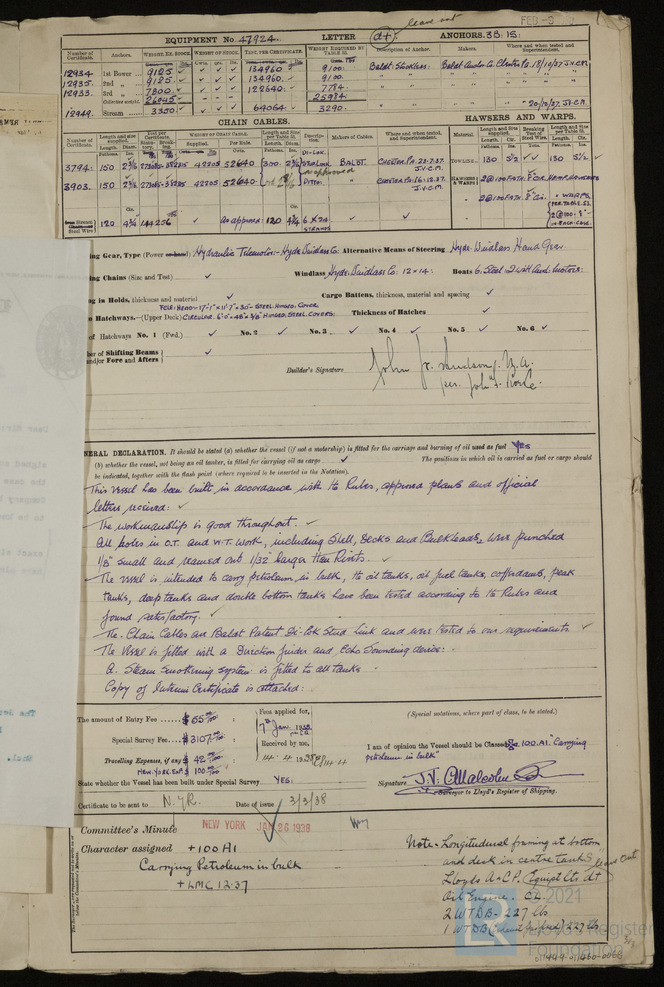 leave out
FEB -9
EQUIPMENT No. 47924. LETTER (d+) ANCHORS. 3B: 1S:
Number of Certificate. Anchors. WEIGHT, EX. STOCK WEIGHT OF STOCK. TEST PER CERTIFICATE. WEIGHT REQUIRED BY TABLE 31. Description of Anchor. Makers. Where and when tested and Superintendent.
12934 1st Bower 9125 ✓ ✓ 134960 9100. Baldt. Stockless. Baldt Anchor Co. Chester Pa. 18/10/37 J.V.C.M.
12935 2nd " 9125 ✓ ✓ 134960 9100. " " " "
12933 3rd " 7800 ✓ ✓ 122640 7784 " " " "
Collective weight 26045 25984
12949 Stream 3350 ✓ ✓ 64064 3290. " " " 20/12/37 J.V.C.M.
CHAIN CABLES. HAWSERS AND WARPS.
Number of Certificate. Length and size supplied. Test per Certificate. WEIGHT OF CHAIN CABLE. Length and Size per Table 31. Description. Makers of Cables. Where and when tested, and Superintendent. Material. Length and Size supplied. Breaking Test of Wire Rope. Length and Size per Table 31.
3794: 150 2 3/16 273085 382315 42205 52640 300 2 3/16 Di-Lok. Stud Link BALDT. CHESTER PA. 23-7-37 J.V.C.M. TOWLINE 130 5 1/2 ✓ ✓ 130 5 1/2 ✓
as approved
3903. 150 2 3/16 273085 382315 42205 52640 DITTO. " CHESTER PA. 16-12-37. J.V.C.M. HAWSERS & WARPS 2@100 FATH. 8" CIR. HEMP HAWSERS
2@100 FATH. 8" Cir. " WARPS.
PER TABLE 53. 2@100: 8" IN EACH CASE.
Stream Steel Wire 120 4 3/4 144256 ✓ as approved: 120 4 3/4 6 x 24 STRANDS
ing Gear, Type (Power or hand) Hydraulic Telemotor - Hyde Windlass Co. Alternative Means of Steering Hyde Windlass Hand Gear
ing Chains (Size and Test) ✓ Windlass Hyde Windlass Co. 12 x 14: Boats 6. Steel - 2 with Aux. Motors:
ng in Holds, thickness and material ✓ Cargo Battens, thickness, material and spacing ✓
FOR. HOLD - 17'-1" x 11'-7" x 30" - STEEL HINGED COVER
o Hatchways.—(Upper Deck) CIRCULAR. 6'-5" x 48" x 3/8" HINGED STEEL COVERS: Thickness of Hatches ✓
of Hatchways No. 1 (Fwd.) ✓ No. 2 ✓ No. 3 ✓ No. 4 ✓ No. 5 ✓ No. 6 ✓
ber of Shifting Beams and/or Fore and Afters ✓
Builder's Signature
NERAL DECLARATION. It should be stated (a) whether the vessel (if not a motorship) is fitted for the carriage and burning of oil used as fuel Yes
(b) whether the vessel, not being an oil tanker, is fitted for carrying oil as cargo ✓ The positions in which oil is carried as fuel or cargo should
be indicated, together with the flash point (where required to be inserted in the Notation).
This Vessel has been built in accordance with the Rules, approved plans and official
letters received: ✓
The workmanship is good throughout. ✓
All holes in O.T. and W.T. work, including Shell, Decks and Bulkheads, were punched
1/8" small and reamed out 1/32" larger than Rivets. ✓
The vessel is intended to carry petroleum in bulk, the oil tanks, oil fuel tanks, cofferdams, peak
tanks, deep tanks and double bottom tanks have been tested according to the Rules and
found satisfactory. ✓
The Chain Cables are Baldt Patent Di-Lok Stud Link and were tested to our requirements ✓
The Vessel is fitted with a Direction finder and Echo Sounding device:
A. Steam smothering system is fitted to all tanks
Copy of Interim Certificate is attached:
The amount of Entry Fee ...... $ 65 00/100 : Fees applied for, (Special notations, where part of class, to be stated.)
7th Jan. 1938
Special Survey Fee.... $ 3107 00/100 : Received by me, I am of opinion the Vessel should be Classed 100.A1. "Carrying
Travelling Expenses, if any $ 42 00/100 petroleum in bulk"
NEW-YORK.EXP. $ 100 00/100
State whether the Vessel has been built under Special Survey. YES. Signature J.V. C. Malcolm
Surveyor to Lloyd's Register of Shipping.
Certificate to be sent to N.YR. Date of issue 3/3/38
Committee's Minute NEW YORK JAN 26 1938
Character assigned +100 A1
Carrying Petroleum in bulk
+LMC 12.37
Note - Longitudinal framing at bottom
and deck in centre tanks
leave out
Lloyds A & C.P. (Equipt Lts d+
Oil Engine. C.L.
2 WTDB - 227 lbs
1 WTDB 227 lbs
© 2021
Lloyd's Register
Foundation
011444-011460-0068